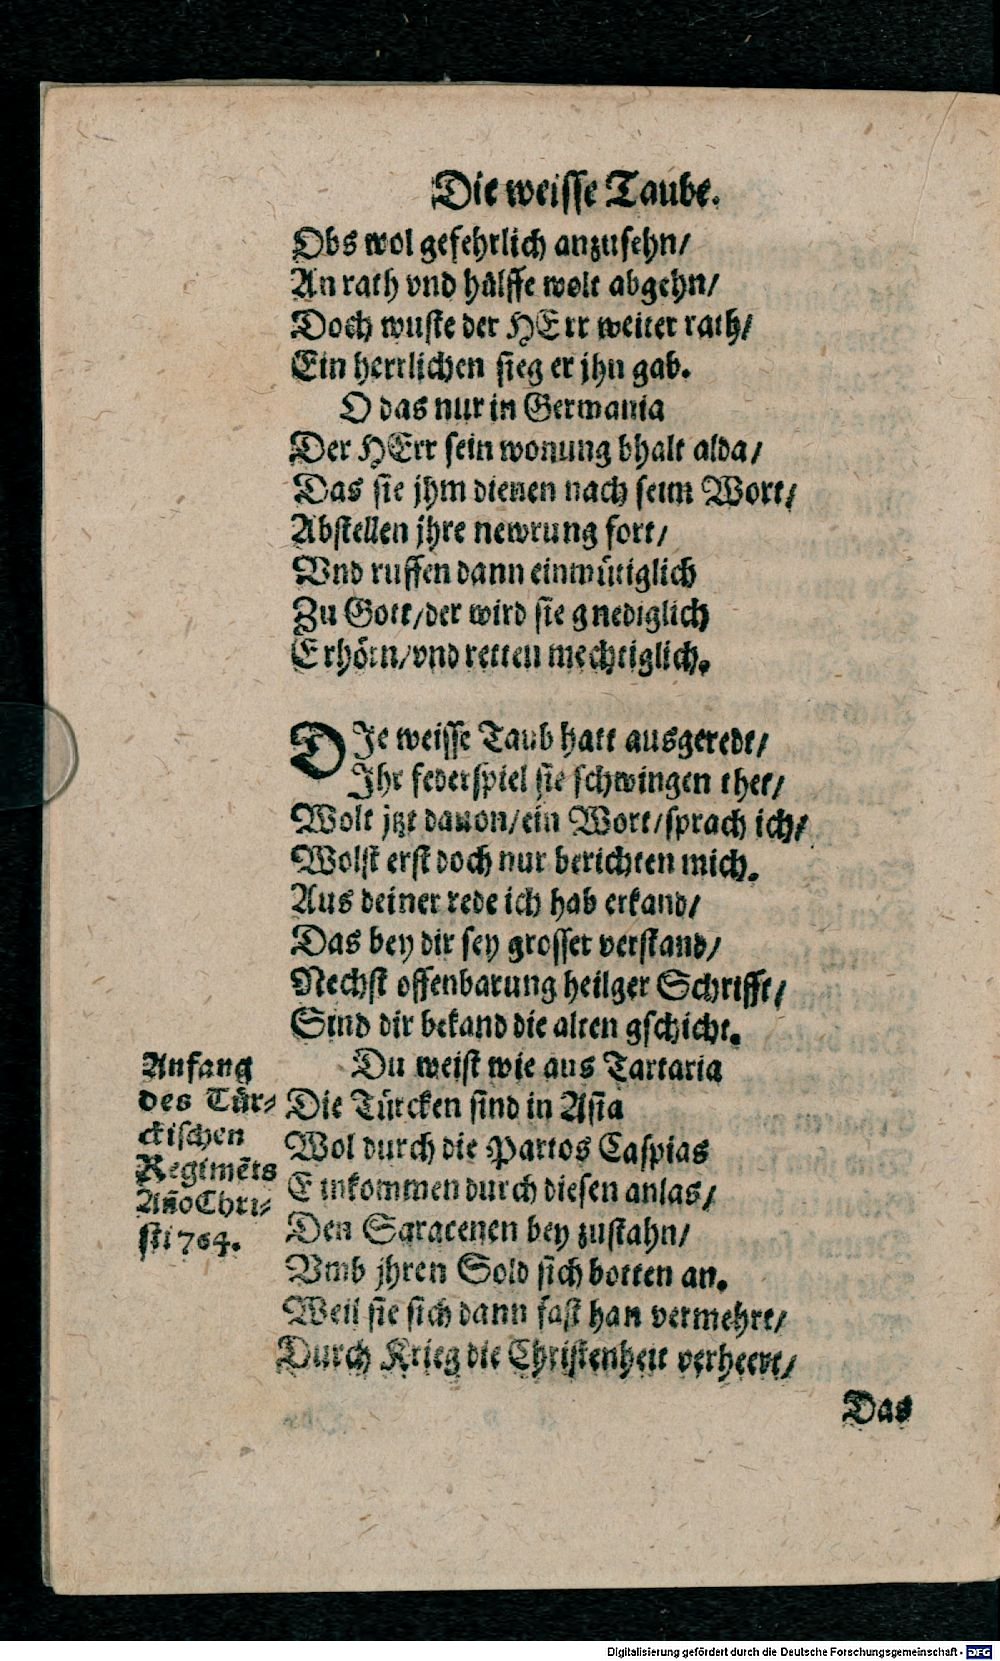 Die weisse Taube.
Obs wol gefehrlich anzusehn/
An rath vnd hülffe wolt abgehn/
Doch wuste der HErr weiter rath/
Ein herrlichen sieg er jhn gab.
O das nur in Germania
Der HErr sein wonung bhalt alda/
Das sie jhm dienen nach seim Wort/
Abstellen jhre newrung fort/
Vnd ruffen dann einmütiglich
Zu Gott/der wird sie gnediglich
Erhörn/vnd retten mechtiglich.
DIe weisse Taub hatt ausgeredt/
Ihr federspiel sie schwingen thet/
Wolt jtzt dauon/ein Wort/sprach ich/
Wolst erst doch nur berichten mich.
Aus deiner rede ich hab erkand/
Das bey dir sey grosser verstand/
Nechst offenbarung heilger Schrifft/
Sind dir bekand die alten gschicht.
Du weist wie aus Tartaria
Die Türcken sind in Asia
Wol durch die Partos Caspias
Einkommen durch diesen anlas/
Den Saracenen bey zustahn/
Vmb jhren Sold sich botten an.
Weil sie sich dann fast han vermehrt/
Durch Krieg die Christenheit verheert/
Anfang
des Tür-
ckischen
Regimẽts
Añο Chri-
sti 764.
Das
Digitalisierung gefördert durch die Deutsche Forschungsgemeinschaft - DFG